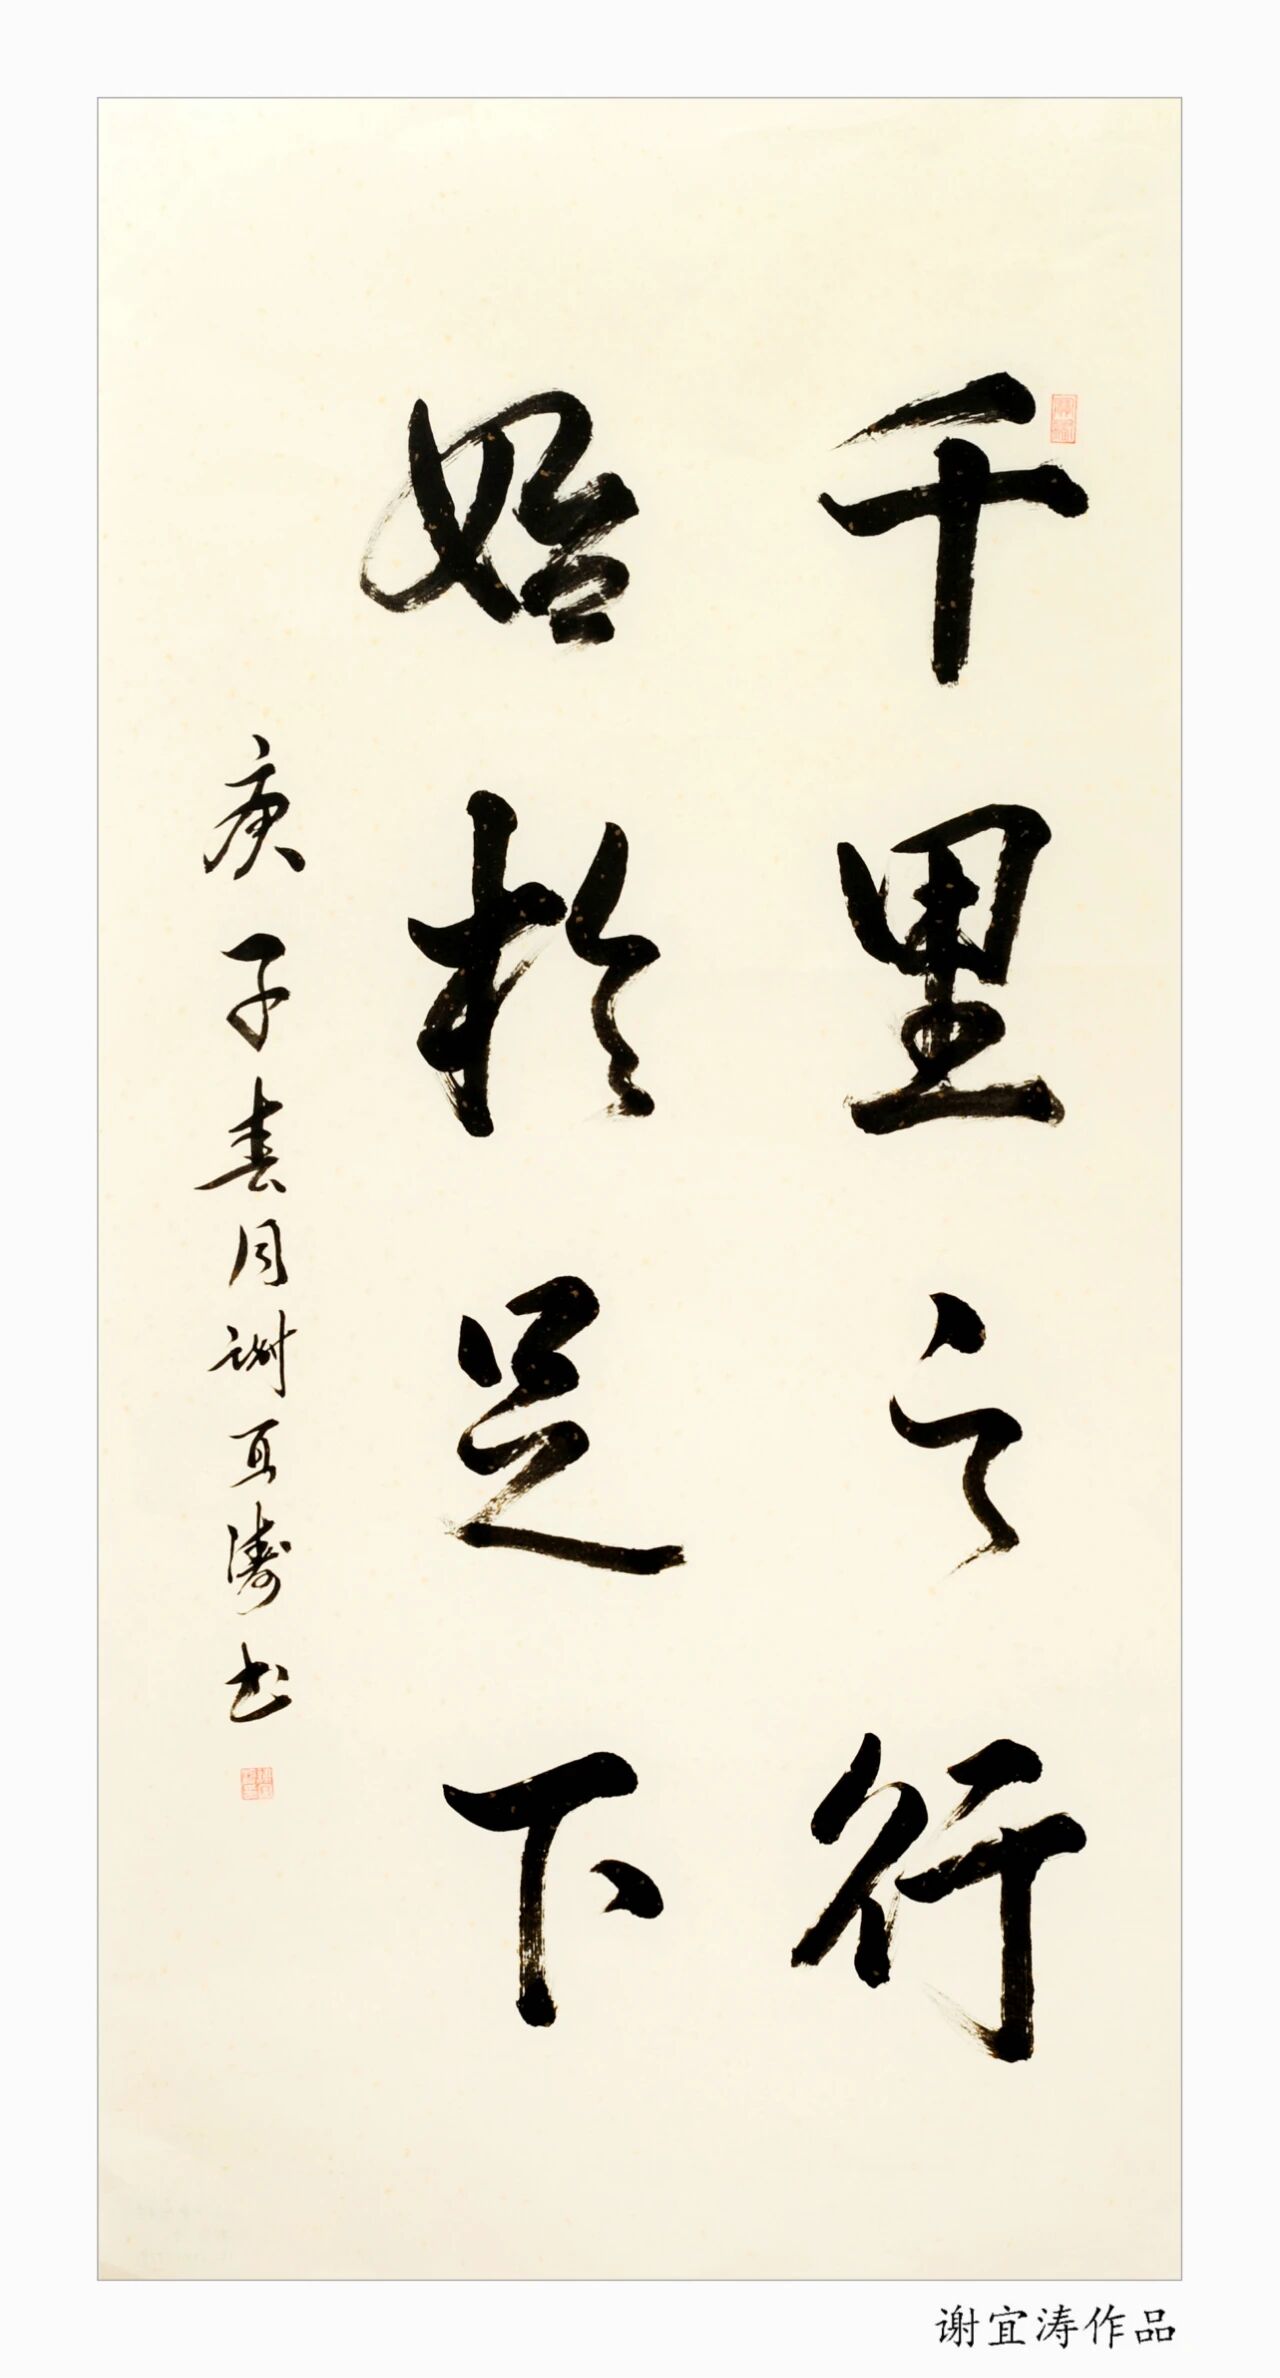 千里之行
始於足下
庚子春月谢宜涛书
谢宜涛作品